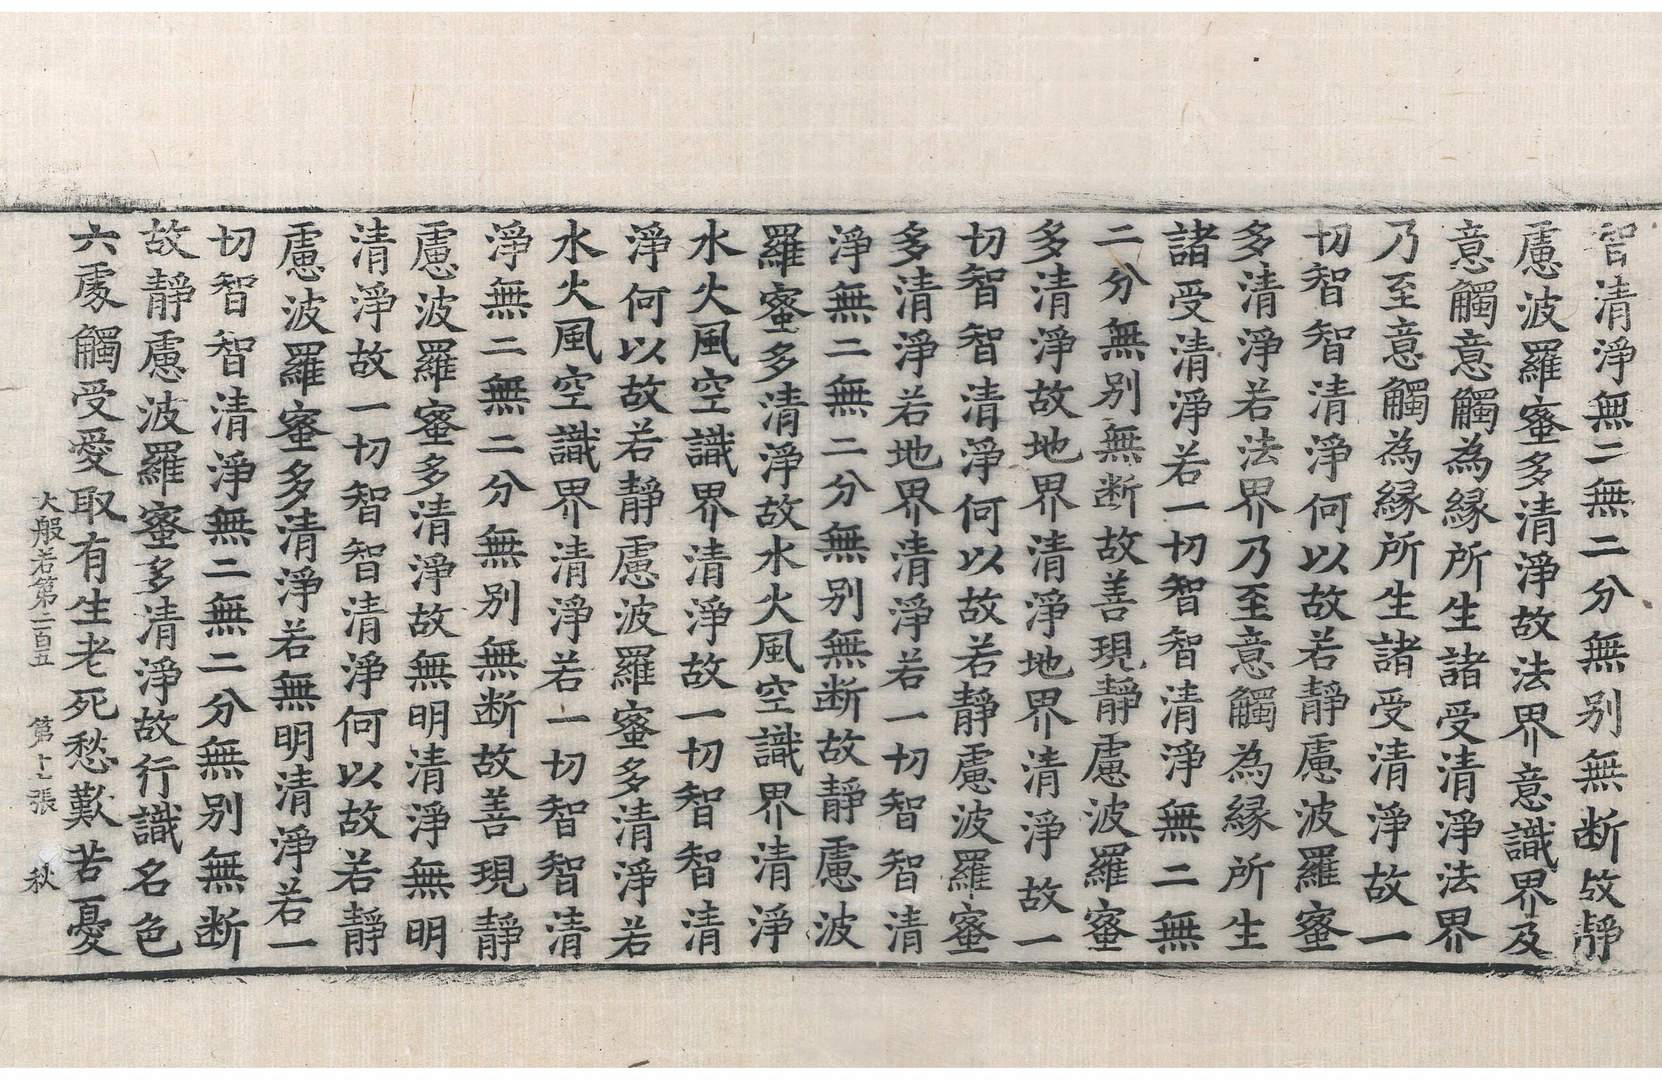 智清淨無二無二分無别無断故靜
慮波羅蜜多清淨故法界意識界及
意觸意觸為縁所生諸受清淨法界
乃至意觸為縁所生諸受清淨故一
切智智清淨何以故若靜慮波羅蜜
多清淨若法界乃至意觸為縁所生
諸受清淨若一切智智清淨無二無
二分無别無断故善現靜慮波羅蜜
多清淨故地界清淨地界清淨故一
切智智清淨何以故若靜慮波羅蜜
多清淨若地界清淨若一切智智清
淨無二無二分無别無断故靜慮波
羅蜜多清淨故水火風空識界清淨
水火風空識界清淨故一切智智清
淨何以故若靜慮波羅蜜多清淨若
水火風空識界清淨若一切智智清
淨無二無二分無别無断故善現靜
慮波羅蜜多清淨故無明清淨無明
清淨故一切智智清淨何以故若靜
慮波羅蜜多清淨若無明清淨若一
切智智清淨無二無二分無别無断
故靜慮波羅蜜多清淨故行識名色
六處觸受愛取有生老死愁歎苦憂
大般若第二百五 第十七張 秋